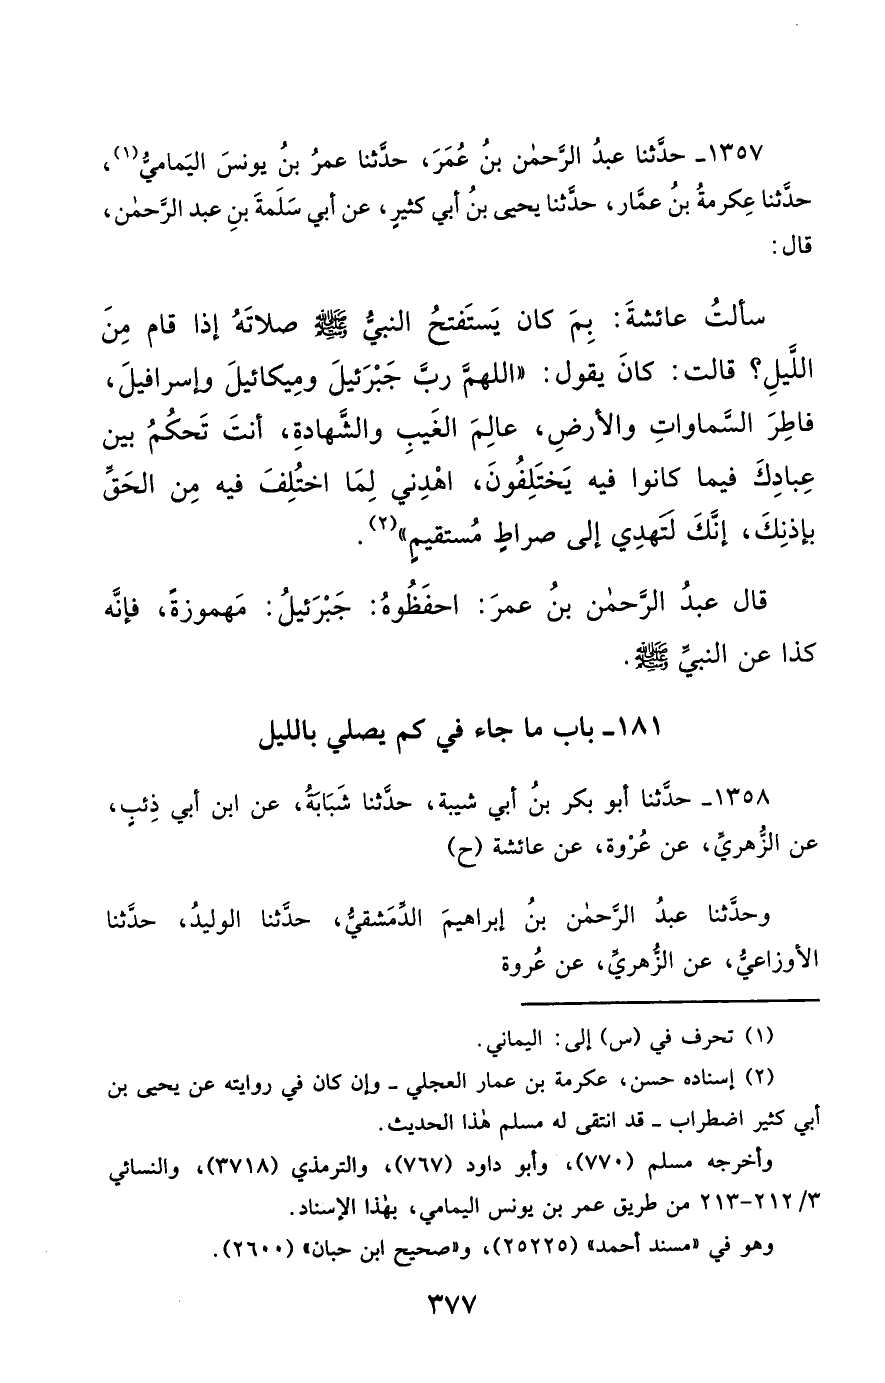 ١٣٥٧ـ حدَّثنا عبدُ الرَّحمٰن بنُ عُمَرَ، حدَّثنا عمرُ بنُ يونسَ اليَماميُّ(١)،
حدَّثنا عِكرمةُ بنُ عمَّار، حدَّثنا يحيى بنُ أبي كثيرٍ، عن أبي سَلَمةَ بنِ عبد الرَّحمٰن،
قال:
سألتُ عائشةَ: بِمَ كان يَستَفتحُ النبيُّ ﷺ صلاتَهُ إذا قام مِنَ
اللَّيلِ؟ قالت: كانَ يقول: «اللهمَّ ربَّ جَبْرَئيلَ ومِيكائيلَ وإسرافيلَ،
فاطِرَ السَّماواتِ والأرضِ، عالِمَ الغَيبِ والشَّهادةِ، أنتَ تَحكُمُ بين
عِبادِكَ فيما كانوا فيه يَختَلِفُونَ، اهْدِني لِمَا اختُلِفَ فيه مِن الحَقِّ
بإذنِكَ، إنَّكَ لَتَهدِي إلى صراطٍ مُستقيمٍ»(٢).
قال عبدُ الرَّحمٰن بنُ عمرَ: احفَظُوهُ: جَبْرَئيلُ: مَهموزةً، فإنَّه
كذا عن النبيِّ ﷺ.
١٨١ـ باب ما جاء في كم يصلي بالليل
١٣٥٨ـ حدَّثنا أبو بكر بنُ أبي شيبة، حدَّثنا شَبَابَةُ، عن ابن أبي ذِئبٍ،
عن الزُّهريِّ، عن عُرْوة، عن عائشة (ح)
وحدَّثنا عبدُ الرَّحمٰن بنُ إبراهيمَ الدِّمَشقيُّ، حدَّثنا الوليدُ، حدَّثنا
الأوزاعيُّ، عن الزُّهريِّ، عن عُروة
(١) تحرف في (س) إلى: اليماني.
(٢) إسناده حسن، عكرمة بن عمار العجلي ـ وإن كان في روايته عن يحيى بن
أبي كثير اضطراب ـ قد انتقى له مسلم هٰذا الحديث.
وأخرجه مسلم (٧٧٠)، وأبو داود (٧٦٧)، والترمذي (٣٧١٨)، والنسائي
٣/ ٢١٢-٢١٣ من طريق عمر بن يونس اليمامي، بهٰذا الإسناد.
وهو في «مسند أحمد» (٢٥٢٢٥)، و«صحيح ابن حبان» (٢٦٠٠).
٣٧٧